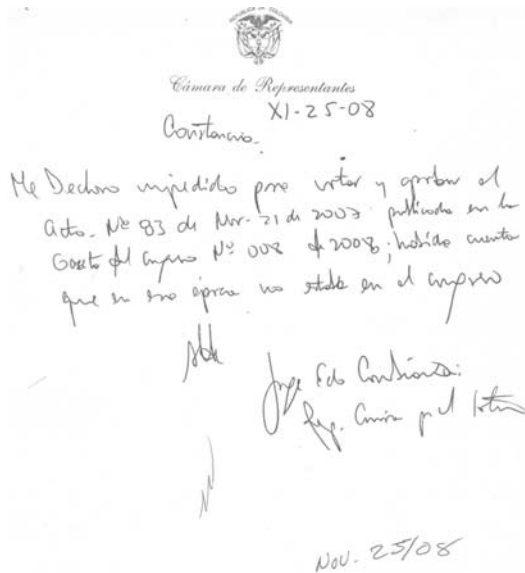 Cámara de Representantes
XI-25-08
Constancia.
Me Declaro impedido para votar y aprobar el
acta. Nº 83 de Nov. 21 de 2007 publicada en la
Gaceta del Congreso Nº 008 de 2008; habida cuenta
que en esa época no estaba en el congreso
Jorge Edo
Rep. Cámara por el
Nov. 25/08